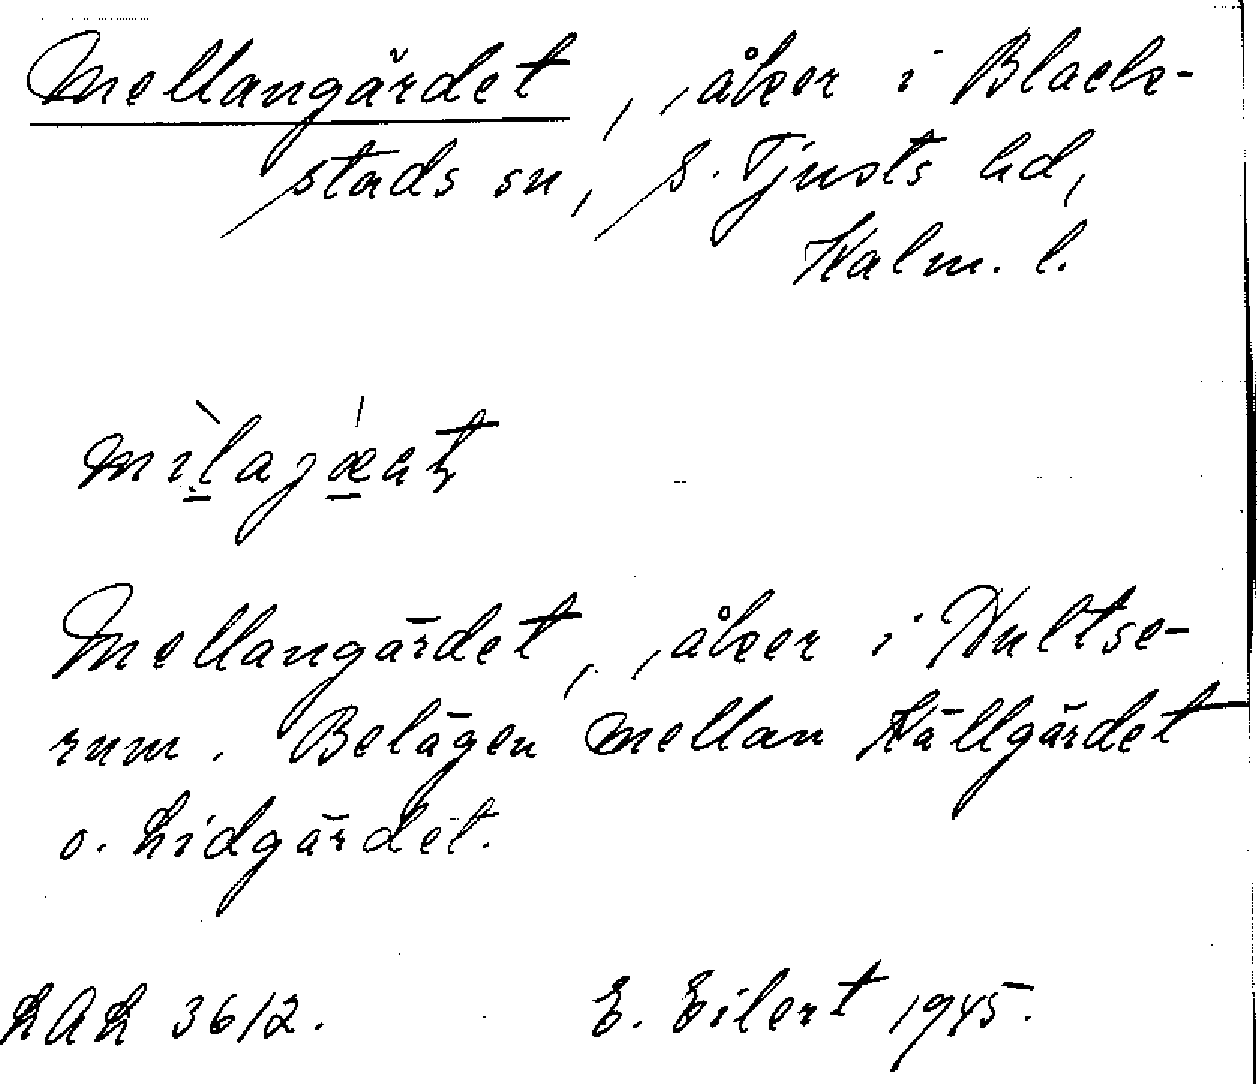 Mellangärdet, åker i Black-
stads sn, S. Tjusts hd,
Kalm. l.
Mellangärdet, åker i Hultse-
rum. Belägen mellan Källgärdet
o. Lidgärdet.
LAL 3612. E. Eilert 1945.